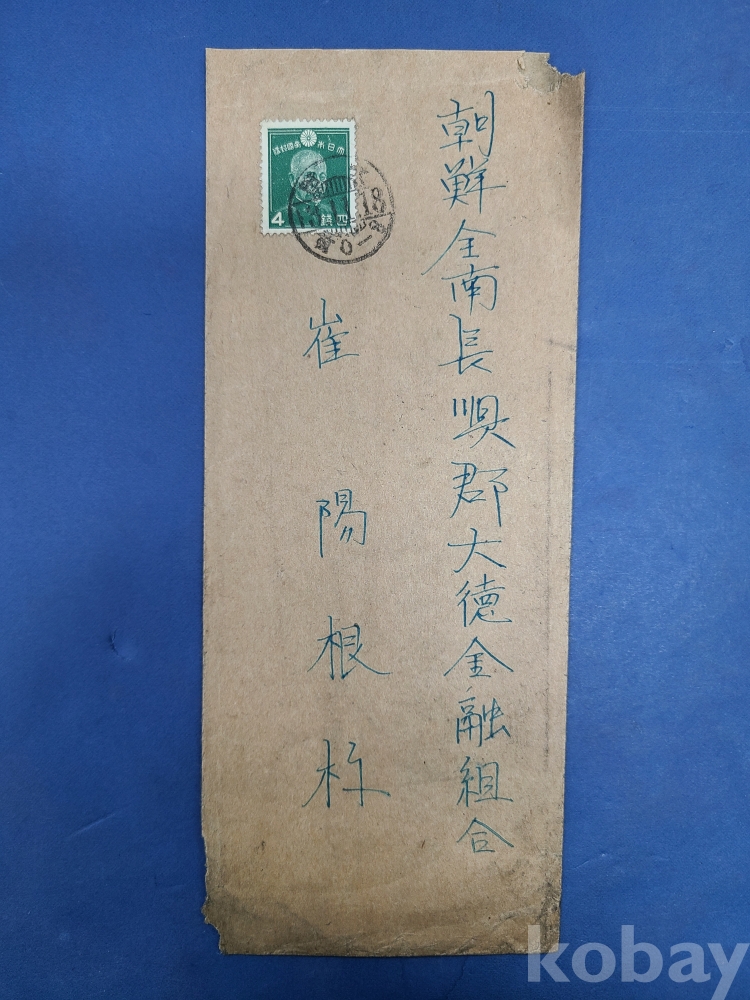 朝鮮全南長順郡大徳金融組合
崔陽根様
大日本帝國郵便
4 錢四
18
kobay